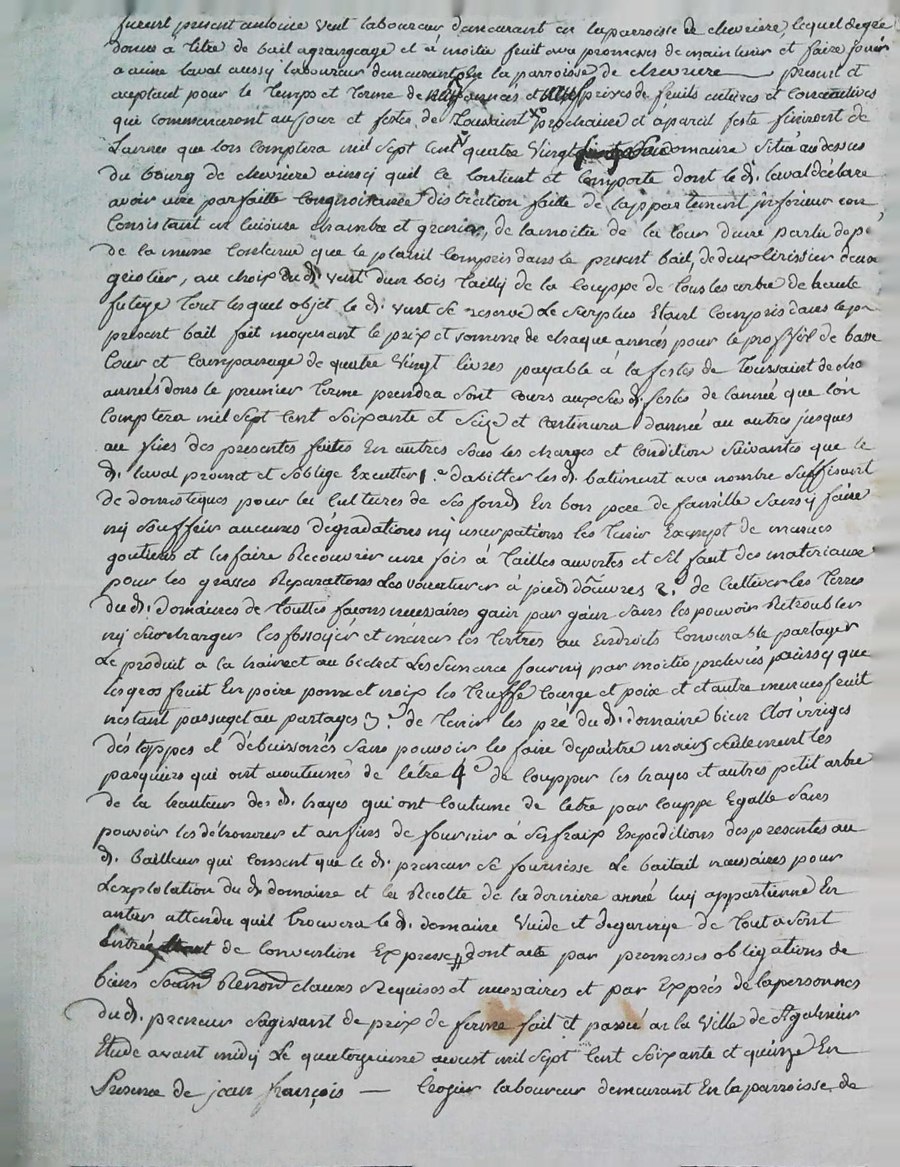 furent present antoine vent laboureur demeurant en la parroisse de chevriere, lequel degré
donne a titre de bail a grangeage et a moitié fruit avec promesses de maintenir et faire jouir
a aimé laval aussy laboureur demeurant en la parroisse de chevriere present et
aceptant pour le temps et terme de années et prises de fruits entieres et consecutives
qui commenceront au jour et feste de Toussaint prochaine et a pareil feste finiront de
Lannée que lors comptera mil sept cent quatre vingt domaine sitüé au dessus
du bourg de chevriere ainssy quil ce contient et comporte dont le d. laval déclare
avoir une parfaitte connoissance distration faite de lappartement jnferieur
Consistant en cuisine chambre et grenier, de la moitié de la cour dune partie
de la meme contenue que le planil compris dans le present bail, de deux cerisier deux
griotier, au choix du d. vent dun bois Tailly de la couppe de tous les arbre de haute
futaye tout lesquel objet le d. vent se reserve Le surplus Etant Compris dans le
present bail fait moyenant le prix et somme de chaque années pour le proffit de basse
Cour et Campanage de quatre vingt livres payable à la feste de Toussaint de
années dont le premier terme prendra son cours aux d. festes de lannée que lon
Comptera mil sept cent soixante et seize et continuera dannée au autres jusques
au fins des presentes faites En outres sous les charges et condition suivantes que le
d. laval promet et soblige Executter 1.º dabitter les d. batiment avec nombre suffisant
de domestiques pour les cultures de ses fonds En bon pere de famille sans y faire
ny souffrir aucunes dégradations ny usurpations les tenir Exempt de menues
goutieres et les faire Recouvrir une fois à Tailles ouvertes et sil faut des materiaux
pour les grosses Reparations Les voiturer à pied dœuvres 2.º de Cultiver les Terres
du d. Domaines de touttes façons necessaires gain par gain sans les pouvoir Retroubler
ny surcharger les fossoyer et mener les tertres au Endroits Convenable partager
Le produit a la benne et au bechet Les semance fourny par moitié prelevés
les gros fruit En poire pomme et noix les truffe courge et poix et et autre menues fruit
nestant pas suget au partages 3.º de tenir les pré du d. domaine bien Clos
des toppes et débuissonnés sans pouvoir les faire depaitre moins seulement les
pasquiers qui ont acoutumés de letre 4.º de coupper les hayes et autres petit arbre
de la hauteur des d. hayes qui ont Coutume de letre par couppe Egalle sans
pouvoir les déhonorer et au fins de fournir à ses fraix Expeditions des presentes au
d. bailleur qui consent que le d. preneur se fournisse Le baitail necessaires pour
Lexplotation du d. domaine et la Recolte de la derniere année luy appartienne En
antier attendu quil trouvera le d. domaine vuide et degarnye de tout a sont
Entrée de convention Expresse dont acte par promesses obligations de
biens Renond clauses Requises et necessaires et par Exprés de la personnes
du d. preneur sagissant de prix de ferme fait et passé en la ville de St galmier
Etude avant midy Le quatorzieme aoust mil sept cent soixante et quinze En
Presence de jean françois — laboureur demeurant En la parroisse de